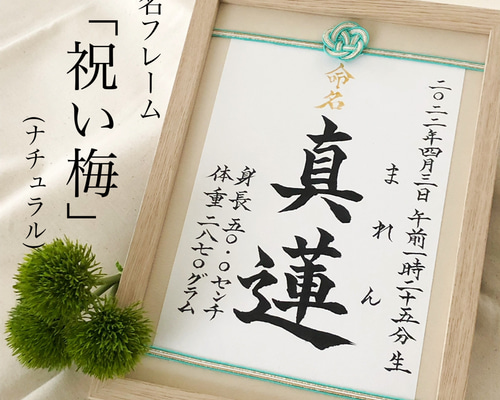 名フレーム
「祝い梅」
(ナチュラル)
命名
二〇二二年四月三日 午前一時二十五分 生
まれん
真蓮
身長 五〇.〇センチ
体重 二八七〇グラム